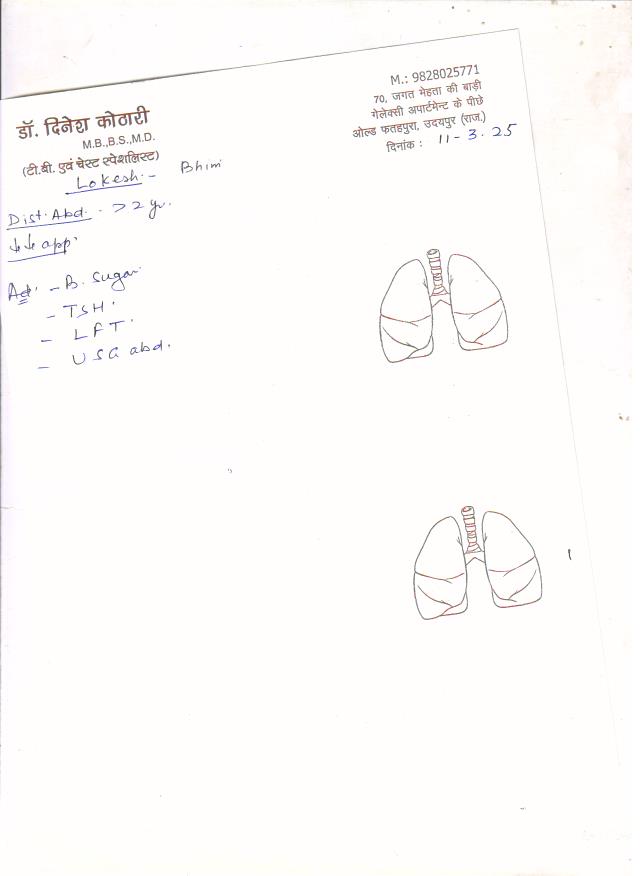 डॉ. दिनेश कोठारी
M.B.,B.S.,M.D.
(टी.बी. एवं चेस्ट स्पेशलिस्ट)
M.: 9828025771
70, जगत मेहता की बाड़ी
गेलेक्सी अपार्टमेन्ट के पीछे
ओल्ड फतहपुरा, उदयपुर (राज.)
दिनांक : 11-3.25
Lokesh - Bhim
Dist. Abd. > 2 yr.
↓↓ app.
Ad. - B. Sugar
- TSH.
- LFT.
- USG abd.